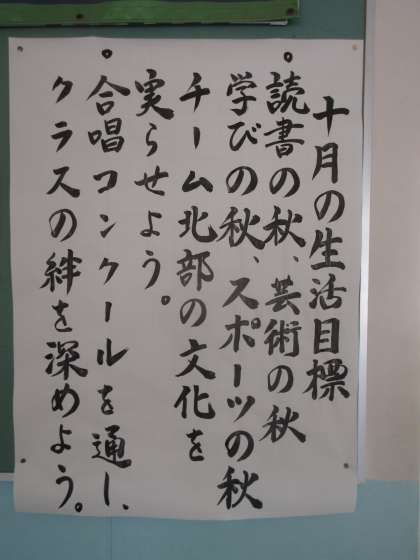 十月の生活目標
。読書の秋、芸術の秋
学びの秋、スポーツの秋
チーム北部の文化を
実らせよう。
。合唱コンクールを通し、
クラスの絆を深めよう。